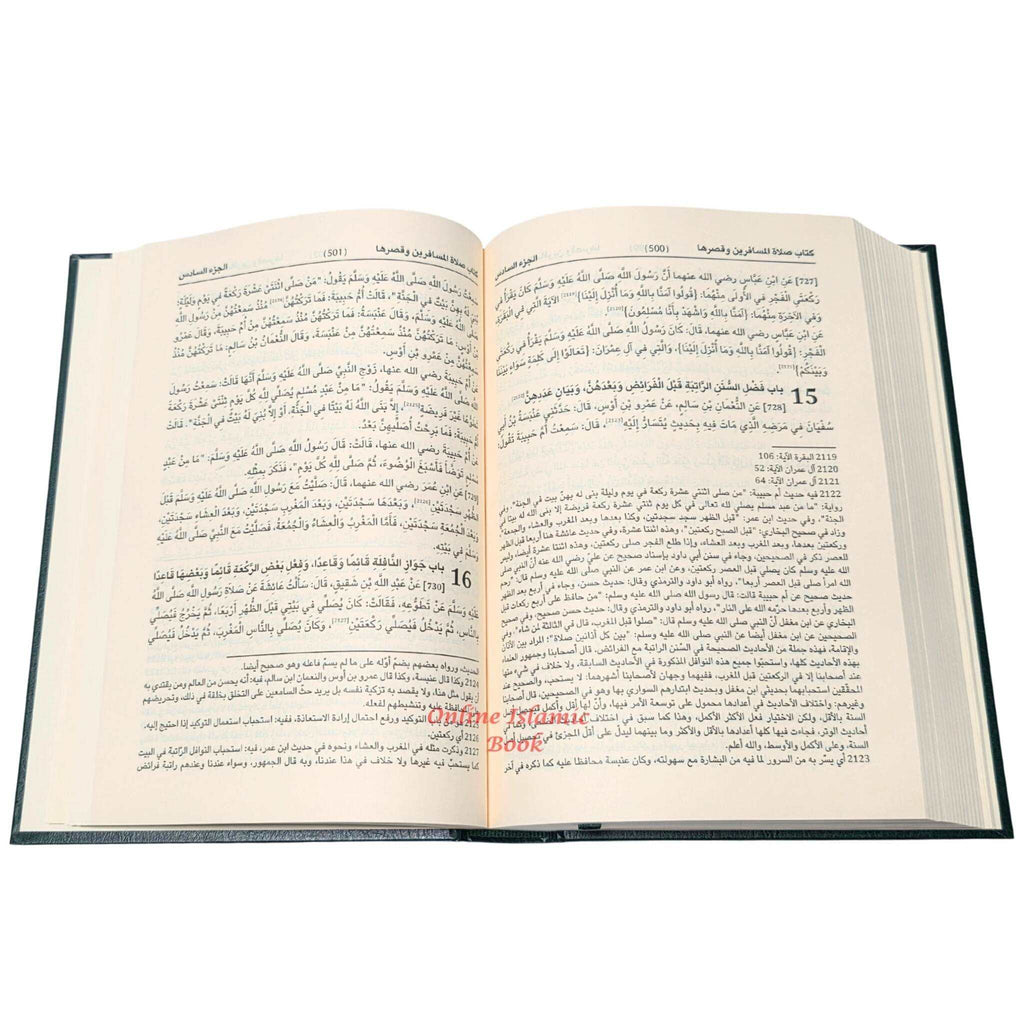 كتاب صلاة المسافرين وقصرها (500) الجزء السادس
[727] عَنِ ابْنِ عَبَّاس رضي الله عنهما أَنَّ رَسُولَ اللَّهِ صَلَّى اللَّهُ عَلَيْهِ وَسَلَّمَ كَانَ يَقْرَأُ فِي
رَكْعَتَيِ الْفَجْرِ فِي الْأُولَى مِنْهُمَا: {قُولُوا آمَنَّا بِاللَّهِ وَمَا أُنْزِلَ إِلَيْنَا}[2119] الآيَةَ الَّتِي فِي الْبَقَرَةِ،
وَفِي الآخِرَةِ مِنْهُمَا: {آمَنَّا بِاللَّهِ وَاشْهَدْ بِأَنَّا مُسْلِمُونَ}[2120].
عَنِ ابْنِ عَبَّاس رضي الله عنهما، قَالَ: كَانَ رَسُولُ اللَّهِ صَلَّى اللَّهُ عَلَيْهِ وَسَلَّمَ يَقْرَأُ فِي رَكْعَتَيِ
الْفَجْرِ: {قُولُوا آمَنَّا بِاللَّهِ وَمَا أُنْزِلَ إِلَيْنَا}، وَالَّتِي فِي آلِ عِمْرَانَ: {تَعَالَوْا إِلَى كَلِمَةٍ سَوَاءٍ بَيْنَنَا
وَبَيْنَكُمْ}[2121].
15 باب فَضْلِ السُّنَنِ الرَّاتِبَةِ قَبْلَ الْفَرَائِضِ وَبَعْدَهُنَّ، وَبَيَانِ عَدَدِهِنَّ
[728] عَنِ النُّعْمَانِ بْنِ سَالِمٍ، عَنْ عَمْرِو بْنِ أَوْسٍ، قَالَ: حَدَّثَنِي عَنْبَسَةُ بْنُ أَبِي
سُفْيَانَ فِي مَرَضِهِ الَّذِي مَاتَ فِيهِ بِحَدِيثٍ يُتَسَارُّ إِلَيْهِ، قَالَ: سَمِعْتُ أُمَّ حَبِيبَةَ تَقُولُ:
2119 البقرة الآية: 106
2120 آل عمران الآية: 52
2121 آل عمران الآية: 64
2122 فيه حديث أم حبيبة: "من صلى اثنتي عشرة ركعة في يوم وليلة بنى له بهن بيت في الجنة". وفي
رواية: "ما من عبد مسلم يصلي لله تعالى في كل يوم ثنتي عشرة ركعة تطوعا غير فريضة إلا بنى الله له بيتا في
الجنة". وفي حديث ابن عمر: "قبل الظهر سجدتين، وكذا بعدها وبعد المغرب والعشاء والجمعة"
وزاد في صحيح البخاري: "قبل الصبح ركعتين"، وهذه اثنتا عشرة،
وركعتين بعدها، وبعد المغرب وبعد العشاء، وإذا طلع الفجر صلى ركعتين، وهذه اثنتا عشرة أيضا، وليس
للعصر ذكر في الصحيحين، وجاء في سنن أبي داود بإسناد صحيح عن علي رضي الله عنه أن النبي صلى الله
عليه وسلم كان يصلي قبل العصر ركعتين، وعن ابن عمر عن النبي صلى الله عليه وسلم قال: "رحم
الله امرأ صلى قبل العصر أربعا"، رواه أبو داود والترمذي وقال: حديث حسن، وجاء في أربع بعد الظهر
حديث صحيح عن أم حبيبة قالت: قال رسول الله صلى الله عليه وسلم: "من حافظ على أربع ركعات قبل
الظهر وأربع بعدها حرّمه الله على النار"، رواه أبو داود والترمذي وقال: حديث حسن صحيح، وفي صحيح
البخاري عن ابن مغفل أنّ النبي صلى الله عليه وسلم قال: "صلوا قبل المغرب، قال في الثالثة لمن شاء"، وفي
الصحيحين عن ابن مغفل أيضا عن النبي صلى الله عليه وسلم: "بين كل أذانين صلاة"؛ المراد بين الأذان
والإقامة، فهذه جملة من الأحاديث الصحيحة في السنن الراتبة مع الفرائض. قال أصحابنا وجمهور العلماء
بهذه الأحاديث كلها، واستحبّوا جميع هذه النوافل المذكورة في الأحاديث السابقة، ولا خلاف في شيء منها
عند أصحابنا إلا في الركعتين قبل المغرب، ففيهما وجهان لأصحابنا أشهرهما: لا يستحب، والصحيح عند
المحقّقين استحبابهما بحديثي ابن مغفل وبحديث ابتدارهم السواري بها وهو في الصحيحين، قال أصحابنا
وغيرهم: واختلاف الأحاديث في أعدادها محمول على توسعة الأمر فيها، وأنّ لها أقل وأكمل، فيحصل أصل
السنة بالأقل، ولكن الاختيار فعل الأكثر الأكمل، وهذا كما سبق في اختلاف
أحاديث الوتر، فجاءت فيها كلها أعدادها بالأقل والأكثر وما بينهما ليدلّ على أقلّ المجزئ في تحصيل أصل
السنة، وعلى الأكمل والأوسط، والله أعلم.
2123 أي يسرّ به من السرور لما فيه من البشارة مع سهولته، وكان عنبسة محافظا عليه كما ذكره في آخر
كتاب صلاة المسافرين وقصرها (501) الجزء السادس
سَمِعْتُ رَسُولَ اللَّهِ صَلَّى اللَّهُ عَلَيْهِ وَسَلَّمَ يَقُولُ: "مَنْ صَلَّى اثْنَتَيْ عَشْرَةَ رَكْعَةً فِي يَوْمٍ وَلَيْلَةٍ؛
بُنِيَ لَهُ بِهِنَّ بَيْتٌ فِي الْجَنَّةِ"، قَالَتْ أُمُّ حَبِيبَةَ: فَمَا تَرَكْتُهُنَّ مُنْذُ سَمِعْتُهُنَّ مِنْ رَسُولِ اللَّهِ
صَلَّى اللَّهُ عَلَيْهِ وَسَلَّمَ، وَقَالَ عَنْبَسَةُ: فَمَا تَرَكْتُهُنَّ مُنْذُ سَمِعْتُهُنَّ مِنْ أُمِّ حَبِيبَةَ، وَقَالَ عَمْرُو
بْنُ أَوْسٍ: مَا تَرَكْتُهُنَّ مُنْذُ سَمِعْتُهُنَّ مِنْ عَنْبَسَةَ، وَقَالَ النُّعْمَانُ بْنُ سَالِمٍ: مَا تَرَكْتُهُنَّ مُنْذُ
سَمِعْتُهُنَّ مِنْ عَمْرِو بْنِ أَوْسٍ.
عَنْ أُمِّ حَبِيبَةَ رضي الله عنها، زَوْجِ النَّبِيِّ صَلَّى اللَّهُ عَلَيْهِ وَسَلَّمَ أَنَّهَا قَالَتْ: سَمِعْتُ رَسُولَ
اللَّهِ صَلَّى اللَّهُ عَلَيْهِ وَسَلَّمَ يَقُولُ: "مَا مِنْ عَبْدٍ مُسْلِمٍ يُصَلِّي لِلَّهِ كُلَّ يَوْمٍ ثِنْتَيْ عَشْرَةَ رَكْعَةً
تَطَوُّعًا غَيْرَ فَرِيضَةٍ[2125]، إِلَّا بَنَى اللَّهُ لَهُ بَيْتًا فِي الْجَنَّةِ، أَوْ إِلَّا بُنِيَ لَهُ بَيْتٌ فِي الْجَنَّةِ". قَالَتْ
أُمُّ حَبِيبَةَ: فَمَا بَرِحْتُ أُصَلِّيهِنَّ بَعْدُ.
عَنْ أُمِّ حَبِيبَةَ رضي الله عنها، قَالَتْ: قَالَ رَسُولُ اللَّهِ صَلَّى اللَّهُ عَلَيْهِ وَسَلَّمَ: "مَا مِنْ عَبْدٍ
مُسْلِمٍ تَوَضَّأَ فَأَسْبَغَ الْوُضُوءَ، ثُمَّ صَلَّى لِلَّهِ كُلَّ يَوْمٍ"، فَذَكَرَ بِمِثْلِهِ.
[729] عَنِ ابْنِ عُمَرَ رضي الله عنهما، قَالَ: صَلَّيْتُ مَعَ رَسُولِ اللَّهِ صَلَّى اللَّهُ عَلَيْهِ وَسَلَّمَ قَبْلَ
الظُّهْرِ سَجْدَتَيْنِ[2126]، وَبَعْدَهَا سَجْدَتَيْنِ، وَبَعْدَ الْمَغْرِبِ سَجْدَتَيْنِ، وَبَعْدَ الْعِشَاءِ سَجْدَتَيْنِ،
وَبَعْدَ الْجُمُعَةِ سَجْدَتَيْنِ، فَأَمَّا الْمَغْرِبُ وَالْعِشَاءُ وَالْجُمُعَةُ، فَصَلَّيْتُ مَعَ النَّبِيِّ صَلَّى اللَّهُ عَلَيْهِ
وَسَلَّمَ فِي بَيْتِهِ.
16 باب جَوَازِ النَّافِلَةِ قَائِمًا وَقَاعِدًا، وَفِعْلِ بَعْضِ الرَّكْعَةِ قَائِمًا وَبَعْضِهَا قَاعِدًا
[730] عَنْ عَبْدِ اللَّهِ بْنِ شَقِيقٍ، قَالَ: سَأَلْتُ عَائِشَةَ عَنْ صَلَاةِ رَسُولِ اللَّهِ صَلَّى اللَّهُ
عَلَيْهِ وَسَلَّمَ عَنْ تَطَوُّعِهِ، فَقَالَتْ: كَانَ يُصَلِّي فِي بَيْتِي قَبْلَ الظُّهْرِ أَرْبَعًا، ثُمَّ يَخْرُجُ فَيُصَلِّي
بِالنَّاسِ، ثُمَّ يَدْخُلُ فَيُصَلِّي رَكْعَتَيْنِ[2127]، وَكَانَ يُصَلِّي بِالنَّاسِ الْمَغْرِبَ، ثُمَّ يَدْخُلُ فَيُصَلِّي
الحديث، ورواه بعضهم بضمّ أوّله على ما لم يسمّ فاعله وهو صحيح أيضا.
2124 وكذا قال عنبسة، وكذا قال عمرو بن أوس، والنعمان ابن سالم، فيه: أنه يحسن من العالم ومن يقتدي به
أن يقول مثل هذا، ولا يقصد به تزكية نفسه بل يريد حثّ السامعين على التخلق بخلقه في ذلك، وتحريضهم
على المحافظة عليه وتنشيطهم لفعله.
2125 من باب التوكيد ورفع احتمال إرادة الاستعاذة، ففيه: استحباب استعمال التوكيد إذا احتيج إليه.
2126 أي ركعتين.
2127 وذكرت مثله في المغرب والعشاء ونحوه في حديث ابن عمر، فيه: استحباب النوافل الرّاتبة في البيت
كما يستحبّ فيه غيرها ولا خلاف في هذا عندنا، وبه قال الجمهور، وسواء عندنا وعندهم راتبة فرائض
Online Islamic
Book